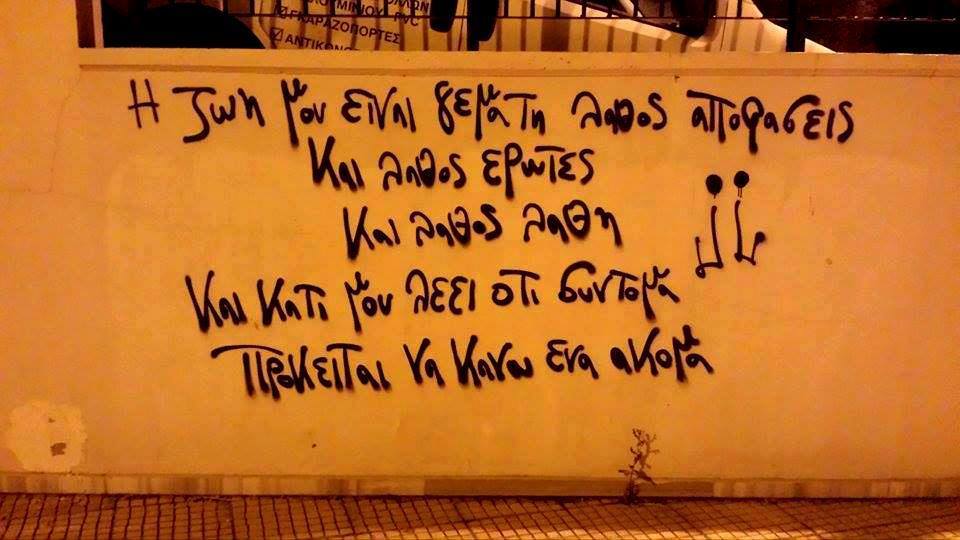 ΛΟΥΜΙΝΙΟΥ PVC
ΓΚΑΡΑΖΟΠΟΡΤΕΣ
Η ζωη μου ειναι γεματη λαθος αποφασεις
Και λαθος ερωτες
Και λαθος λαθη
Και κατι μου λεει οτι συντομα
Προκειται να κανω ενα ακομα